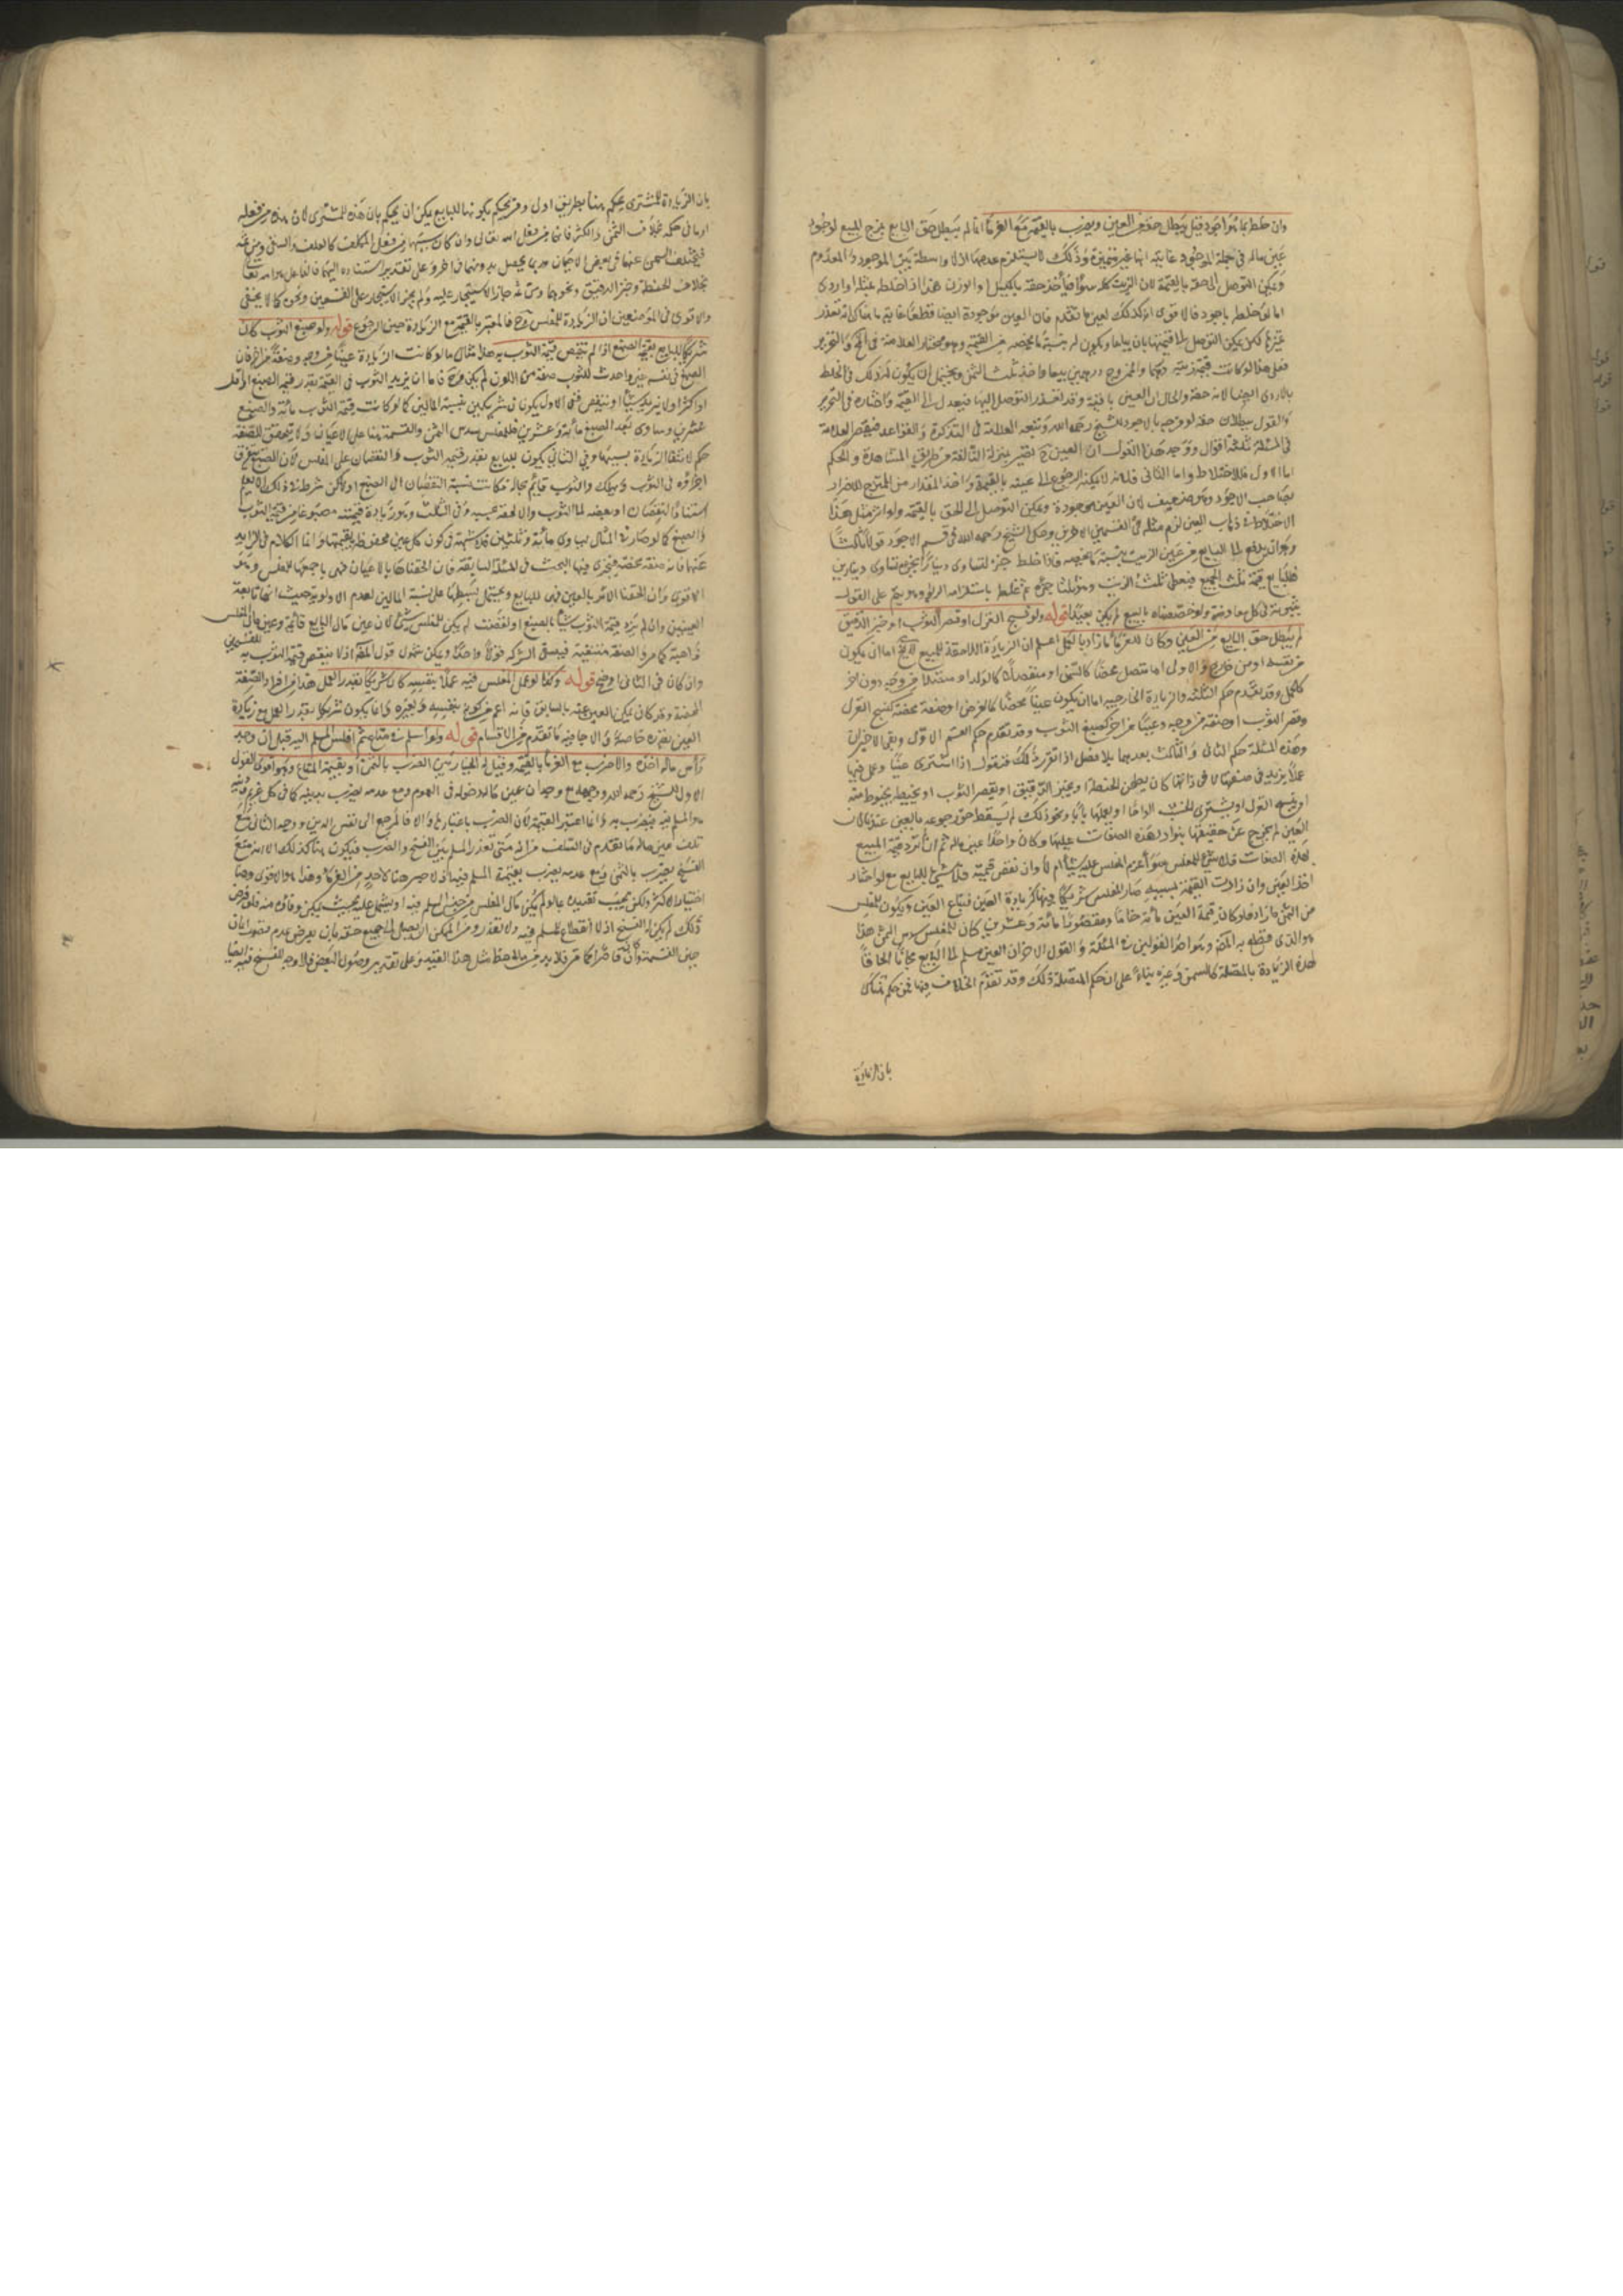 وان خلطه بما هو اجود قيل يبطل حقه من العين ويضرب بالقيمة مع الغرماء انما لم يبطل حق البايع بمزج المبيع لوجود
عين ماله في جملة الموجود غايته انها غير متميزة وذلك لا يستلزم عدمها اذ لا واسطة بين الموجود والمعدوم
ويمكن التوصل الى حقه بالقيمة لان الزيت كله سواء فيأخذ حقه بالكيل او الوزن هذا اذا خلطه بمثله او اردى
اما لو خلطه باجود فالاقوى انه كذلك لعين ما تقدم فان العين موجودة ايضا قطعا غايته ما هناك انه تعذر
تميزها لكن يمكن التوصل الى قيمتها بان يباعا ويكون له نسبة ما يخصه من القيمة وهو مختار العلامة في والتحرير
فعلى هذا لو كانت قيمة زيته درهما والممزوج درهمين بيعا واخذ ثلث الثمن ويحتمل ان يكون له ذلك في الخلط
بالاردى ايضا لانه حقه والحال ان العين باقية وقد تعذر التوصل اليها فيعدل الى القيمة واختاره في التحرير
والقول ببطلان حقه لو مزجه بالاجود للشيخ رحمه الله وتبعه العلامة في التذكرة والقواعد فيصير للعلامة
في المسئلة ثلثة اقوال ووجه هذا القول ان العين ح تصير بمنزلة التالفة من طريق المشاهدة والحكم
اما الاول فللاختلاط واما الثاني فلانه لا يمكنه الرجوع الى عينه بالقيمة واخذ المقدار من الممتزج للاضرار
بصاحب الاجود وهو ضعيف لان العين موجودة ويمكن التوصل الى الحق بالقيمة ولو اثر مثل هذا
الاختلاط في ذهاب العين لزم مثله في القسمين الاخرين وحكى الشيخ رحمه الله في قسم الاجود قولا ثالثا
وهو انه يدفع الى البايع من عين الزيت بنسبة ما يخصه فاذا خلط جرة تساوي دينارا بجرة تساوي دينارين
فللبايع قيمة ثلث الجميع فيعطى ثلث الزيت وهو ثلثا جرة ثم غلطه باستلزامه الربا وهو يتم على القول
بثبوته في كل معاوضة ولو خصصناه بالبيع لم يكن بعيدا قوله ولو نسج الغزل او قصر الثوب او خبز الدقيق
لم يبطل حق البايع من العين وكان للغرماء ما زاد بالعمل اعلم ان الزيادة اللاحقة للمبيع اما ان يكون
من نفسه او من خارج والاولى اما متصل محضا كالسمن او منفصلا كالولد او متصلا من وجه دون اخر
كالحمل وقد تقدم حكم الثلثة والزيادة الخارجية اما ان يكون عينا محضا كالغرس او صفة محضة كنسج الغزل
وقصر الثوب او صفة من وجه وعينا من اخر كصبغ الثوب وقد تقدم حكم القسم الاول وبقي الاخيران
وهذه المسئلة حكم الثاني والثالث بعدها بلا فصل اذا تقرر ذلك فنقول اذا اشترى عينا وعمل فيها
عملا يزيد في صفتها لا في ذاتها كان يطحن الحنطة او يخبز الدقيق او يقصر الثوب او يخيطه بخيوط منه
او ينسج الغزل او يشتري الخشب الواحا او يعملها بابا ونحو ذلك لم يسقط حق رجوعه بالعين عندنا لان
العين لم تخرج عن حقيقتها بتوارد هذه الصفات عليها وكان واجدا عين ماله ثم ان لم تزد قيمة المبيع
بهذه الصفات فلا شئ للمفلس سواء غرم المفلس عليه شيئا ام لا وان نقص قيمته فلا شئ للبايع مع لو اختار
اخذ العين وان زادت القيمة بسببه صار المفلس شريكا فيها كزيادة العين فتباع العين ويكون للمفلس
من الثمن ما زاد فلو كان قيمة العين مائة خاما ومقصورا مائة وعشرين كان للمفلس سدس الثمن هذا
هو الذي قطع به المصنف وهو احد القولين في المسئلة والقول الاخر ان العين يسلم الى البايع مجانا الحاقا
لهذه الزيادة بالمتصلة كالسمن وغيره بناء على ان حكم المتصلة ذلك وقد تقدم الخلاف فيها فمن حكم هناك
بان الزيادة
بان الزيادة للمشتري يحكم هنا بطريق اولى ومن يحكم بكونها للبايع يمكن ان يحكم بان هذه للمشتري لان هذه من فعله
او ما في حكمه بخلاف السمن والكبر فانها من فعل الله تعالى وان كان سببها من فعل المكلف كالعلف والسقي ومن ثمه
فيتخلف السمن عنها في بعض الاحيان وربما يحصل بدونهما في اخر وعلى تقدير استناده اليهما فالفاعل هو الله تعالى
بخلاف الحنطة وخبز الدقيق ونحوهما ومن ثمه جاز الاستيجار عليه ولم يجز الاستيجار على التسمين ونحوه كما لا يخفى
والاقوى في الموضعين ان الزيادة للمفلس وح فالمعتبر بالقيمة مع الزيادة حين الرجوع قوله ولو صبغ الثوب كان
شريكا للبايع بقيمة الصبغ اذا لم تنقص قيمة الثوب به هذا مثال ما لو كانت الزيادة عينا من وجه وصفة من اخر فان
الصبغ في نفسه عين واحدث للثوب صفة من اللون لم يكن وح فاما ان يزيد الثوب في القيمة بقدر قيمة الصبغ او اقل
او اكثر او لا يزيد شيئا او ينقص ففي الاول يكونان شريكين بنسبة المالين كما لو كانت قيمة الثوب مائة والصبغ
عشرين وساوى بعد الصبغ مائة وعشرين فللمفلس سدس الثمن والقسمة هنا على الاعيان ولا يتحقق للصفة
حكم لانتفاء الزيادة بسببها وفي الثاني يكون للبايع بقدر قيمة الثوب والنقصان على المفلس لان الصبغ تتفرق
اجزاؤه في الثوب ويهلك والثوب قايم بحاله فكانت نسبة النقصان الى الصبغ اولى لكن شرط في ذلك ان لا يعلم
استناد النقصان او بعضه الى الثوب والا لحقه بحسبه وفي الثالث وهو زيادة قيمته مصبوغا عن قيمة الثوب
والصبغ كما لو صار في المثال يساوي مائة وثلثين فلا شبهة في كون كل عين محفوظ بقيمتها وانما الكلام في الزايد
عنها فانه صفة محضة فيجري فيها البحث في المسئلة السابقة فان الحقناها بالاعيان فهي باجمعها للمفلس وهو
الاقوى وان الحقنا الاثر بالعين فهي للبايع ويحتمل بسطها على نسبة المالين لعدم الاولوية حيث انها تابعة
للعينين وان لم يزد قيمة الثوب شيئا بالصبغ او نقصت لم يكن للمفلس شئ لان عين مال البايع قائمة وعين مال المفلس
ذاهبة كما مر والصفة منتفية فينتفي الشركة قولا واحدا ويمكن شمول قول المصنف اذا لم ينقص قيمة الثوب به للقسمين
وان كان في الثاني اوضح قوله وكذا لو عمل المفلس فيه عملا بنفسه كان شريكا بقدر العمل هذا من افراد الصفة
المحضة وقد كان يمكن الغنى عنه بالسابق فانه اعم من كونه بنفسه وبغيره وانما يكون شريكا بقدر العمل مع زيادة
العين بقدره خاصة والا جاء فيه ما تقدم من الاقسام قوله ولو اسلم في متاع ثم افلس المسلم اليه قيل ان وجد
رأس ماله اخذه والا ضرب مع الغرماء بالقيمة وقيل له الخيار بين الضرب بالثمن او بقيمة المتاع وهو اقوى القول
الاول للشيخ رحمه الله ووجهه مع وجدان عين ماله دخوله في العموم ومع عدمه يضرب بدينه كما في كل غريم ودينه
هو المسلم فيه فيضرب به وانما اعتبر القيمة لان الضرب باعتبارها والا فالمرجع الى نفس الدين ووجه الثاني مع
تلف عين ماله ما تقدم في السلف من انه متى تعذر المسلم تخير بين الفسخ والضرب فيكون هنا كذلك الا انه مع
الفسخ يضرب بالثمن ومع عدمه يضرب بقيمة المسلم فيه اذ لا صبر هنا لاحد من الغرماء وهذا هو الاقوى
اختيار الاكثر ولكن يجب تقييده بما لو لم يكن مال المفلس من جنس المسلم فيه او يشتمل عليه بحيث يمكن وفاؤه منه فلو فرض
ذلك لم يكن له الفسخ اذ لا انقطاع للمسلم فيه ولا تعذر ومن الممكن ان يصل الى جميع حقه بان يعرض عدم قصور المال
حين القسمة وان كان قاصرا كما مر فلا بد من ملاحظة مثل هذا القيد وعلى تقدير وصول البعض فلا وجه للفسخ فيه ايضا